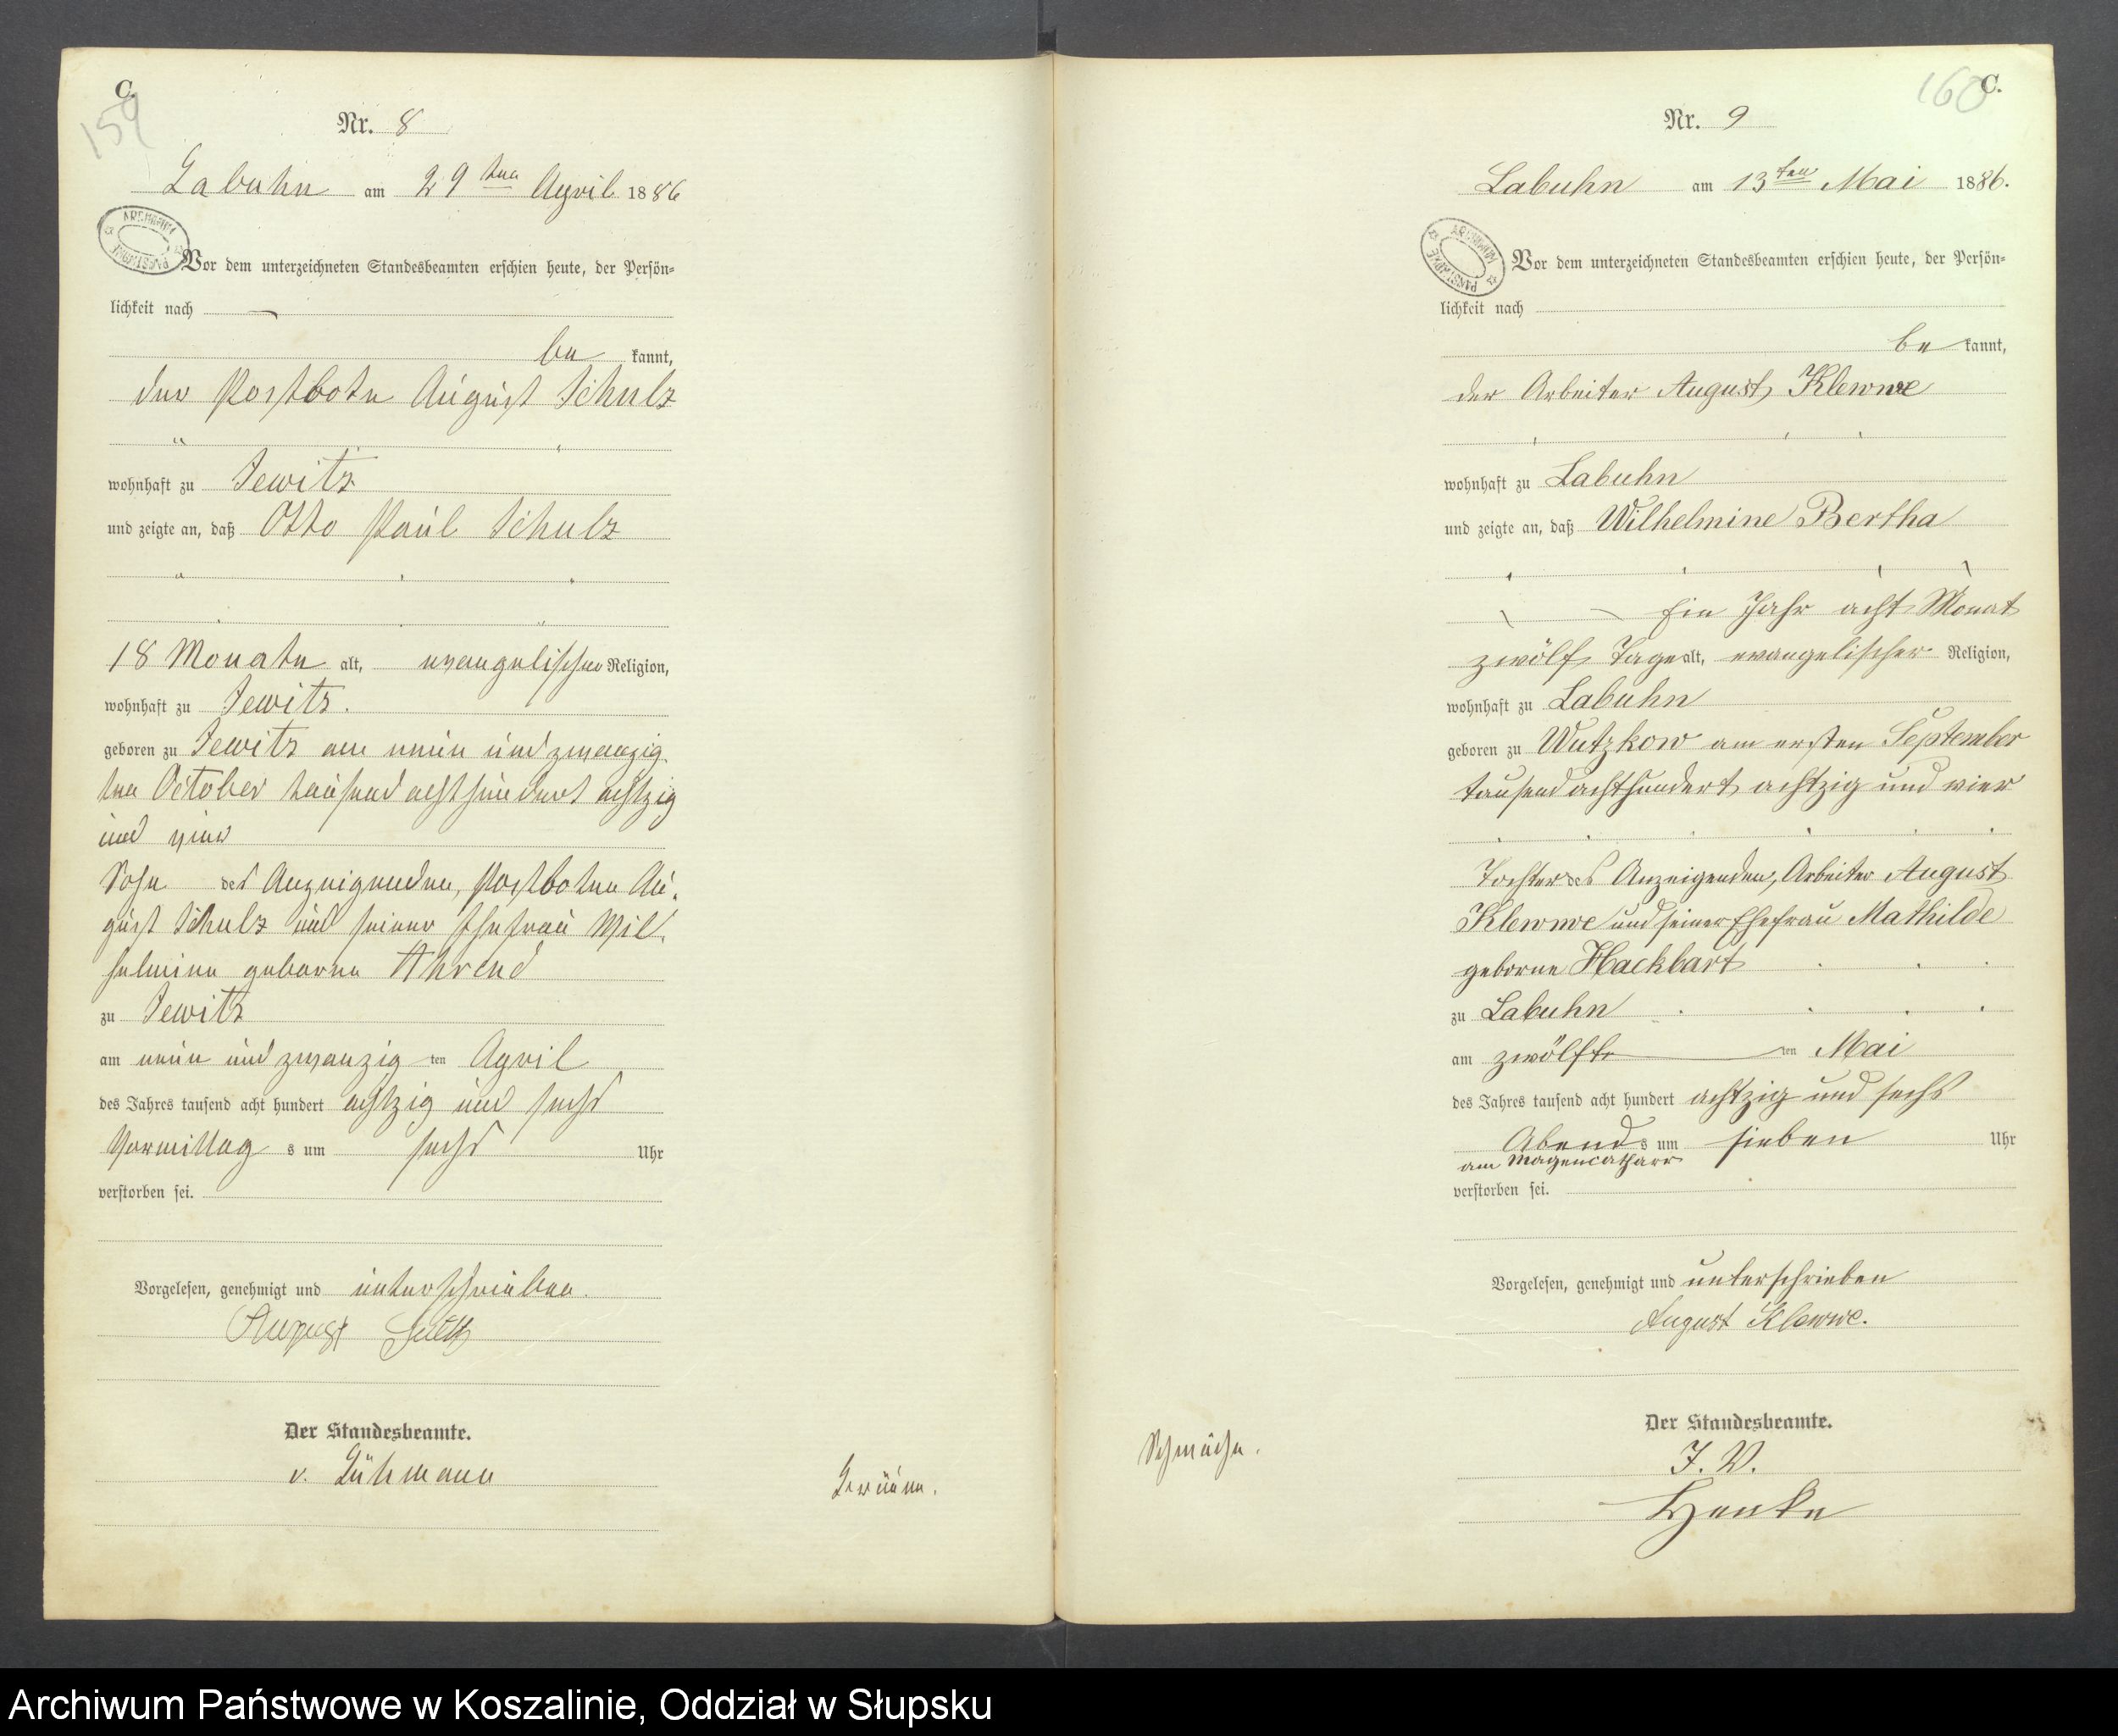 C.
159
Nr. 8
Labuhn am 29ten April 1886
ARCHIWUM PAŃSTWOWE
Vor dem unterzeichneten Standesbeamten erschien heute, der Persön=
lichkeit nach
be kannt,
der Postbote August Schulz
wohnhaft zu Jewitz
und zeigte an, daß Otto Paul Schulz
18 Monate alt, evangelischer Religion,
wohnhaft zu Jewitz.
geboren zu Jewitz am neun und zwanzig
ten October tausend acht hundert achtzig
und vier
Sohn des Anzeigenden, Postboten Au=
gust Schulz und seiner Ehefrau Wil=
helmine geborne Ahrend
zu Jewitz
am neun und zwanzig ten April
des Jahres tausend acht hundert achtzig und sechs
Vormittag s um sechs Uhr
verstorben sei.
Vorgelesen, genehmigt und unterschrieben.
August
Der Standesbeamte.
v. Lühmann
C.
160
Nr. 9
Labuhn am 13ten Mai 1886.
ARCHIWUM PAŃSTWOWE
Vor dem unterzeichneten Standesbeamten erschien heute, der Persön=
lichkeit nach
be kannt,
der Arbeiter August Klewwe
wohnhaft zu Labuhn
und zeigte an, daß Wilhelmine Bertha
Ein Jahr acht Monat
zwölf Tage alt, evangelischer Religion,
wohnhaft zu Labuhn
geboren zu Wutzkow am ersten September
tausend achthundert achtzig und vier
Tochter des Anzeigenden, Arbeiter August
Klewwe und seiner Ehefrau Mathilde
geborne Hackbart
zu Labuhn
am zwölfte ten Mai
des Jahres tausend acht hundert achtzig und sechs
Abend s um sieben Uhr
am Magencatharr
verstorben sei.
Vorgelesen, genehmigt und unterschrieben
August Klewwe.
Schwäche.
Der Standesbeamte.
I. V.
Henke
Archiwum Państwowe w Koszalinie, Oddział w Słupsku